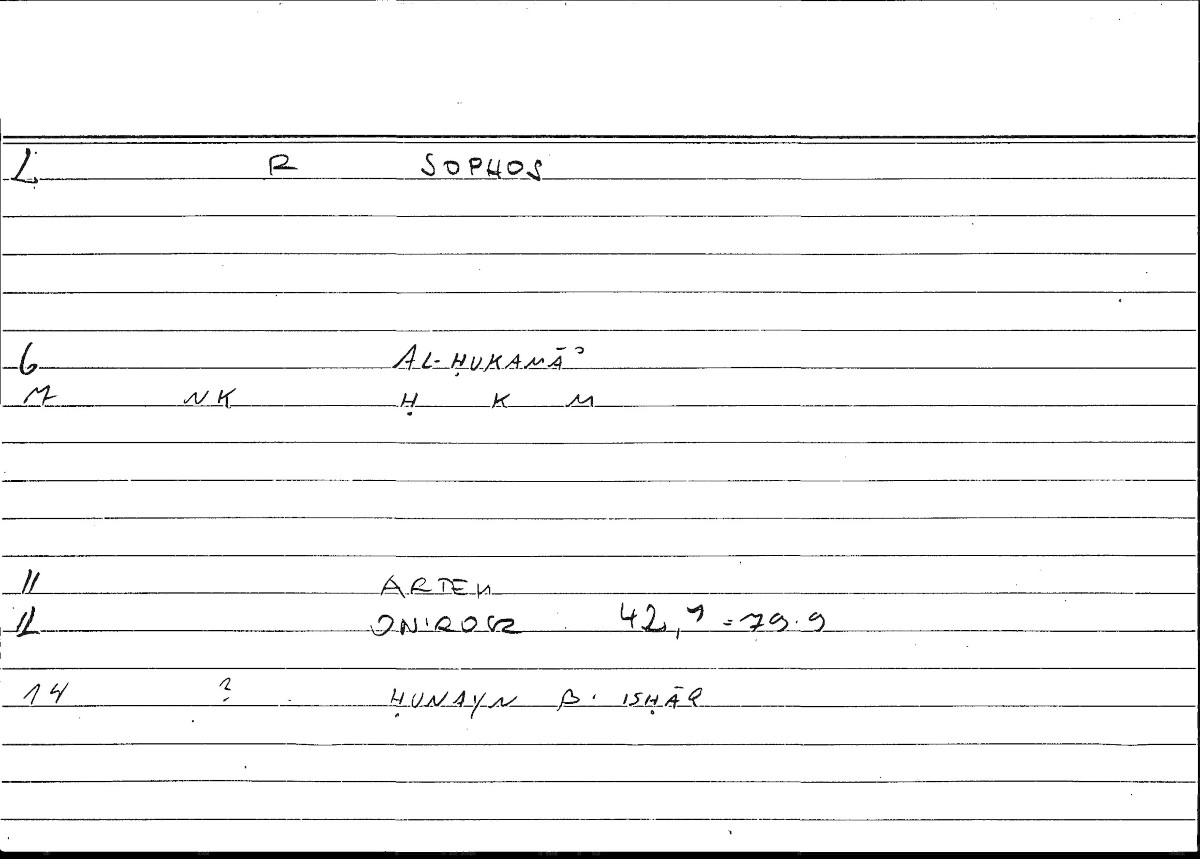 2 R SOPHOS
6 AL-ḤUKAMĀʾ
7 NK Ḥ K M
11 ARTEM
12 ONIROCR 42,9 = 79.9
14 ? ḤUNAYN B. ISḤĀQ